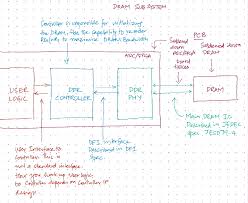 DRAM SUB SYSTEM
Controller is responsible for initializing
the DRAM, has the capability to reorder
Reads to maximize DRAM Bandwidth
ASIC/FPGA
PCB
Soldered down
DRAM
USER
LOGIC
DDR
CONTROLLER
DDR
PHY
DRAM
User Interface to
Controller this is
not a standard interface
How you hook up user logic
to Controller depends on Controller IP
Design
DFI interface
Described in DFI
Spec
Main DRAM IO
Published in JEDEC
Spec JESD79-4